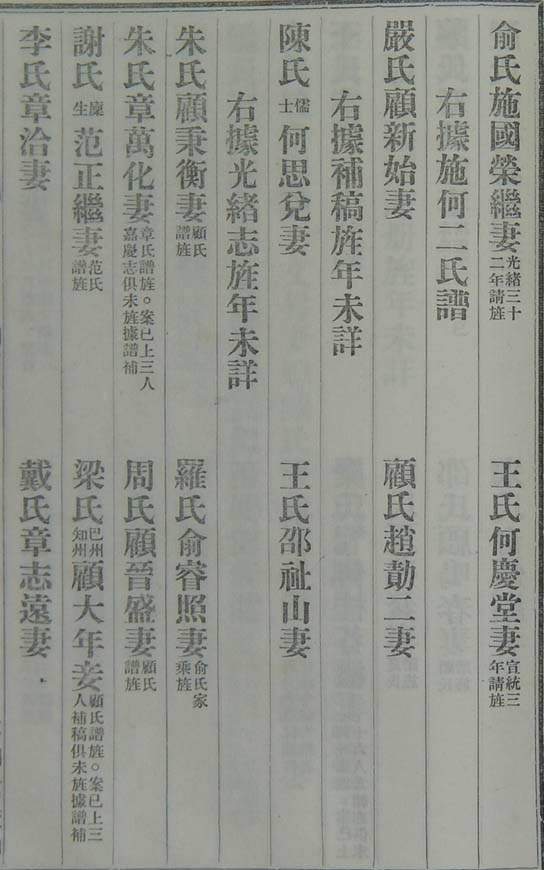 俞氏施國榮繼妻光緒三十二年請旌 王氏何慶堂妻宣統三年請旌
右據施何二氏譜
嚴氏顧新始妻 顧氏趙勣二妻
右據補稿旌年未詳
陳氏儒士何思兌妻 王氏邵祉山妻
右據光緒志旌年未詳
朱氏顧秉衡妻顧氏譜旌 羅氏俞睿照妻俞氏家乘旌
朱氏章萬化妻章氏譜旌○案已上三人嘉慶志俱未旌據譜補 周氏顧晉盛妻顧氏譜旌
謝氏廩生范正繼妻范氏譜旌 梁氏巴州知州顧大年妾顧氏譜旌○案已上三人補稿俱未旌據譜補
李氏章洽妻 戴氏章志遠妻